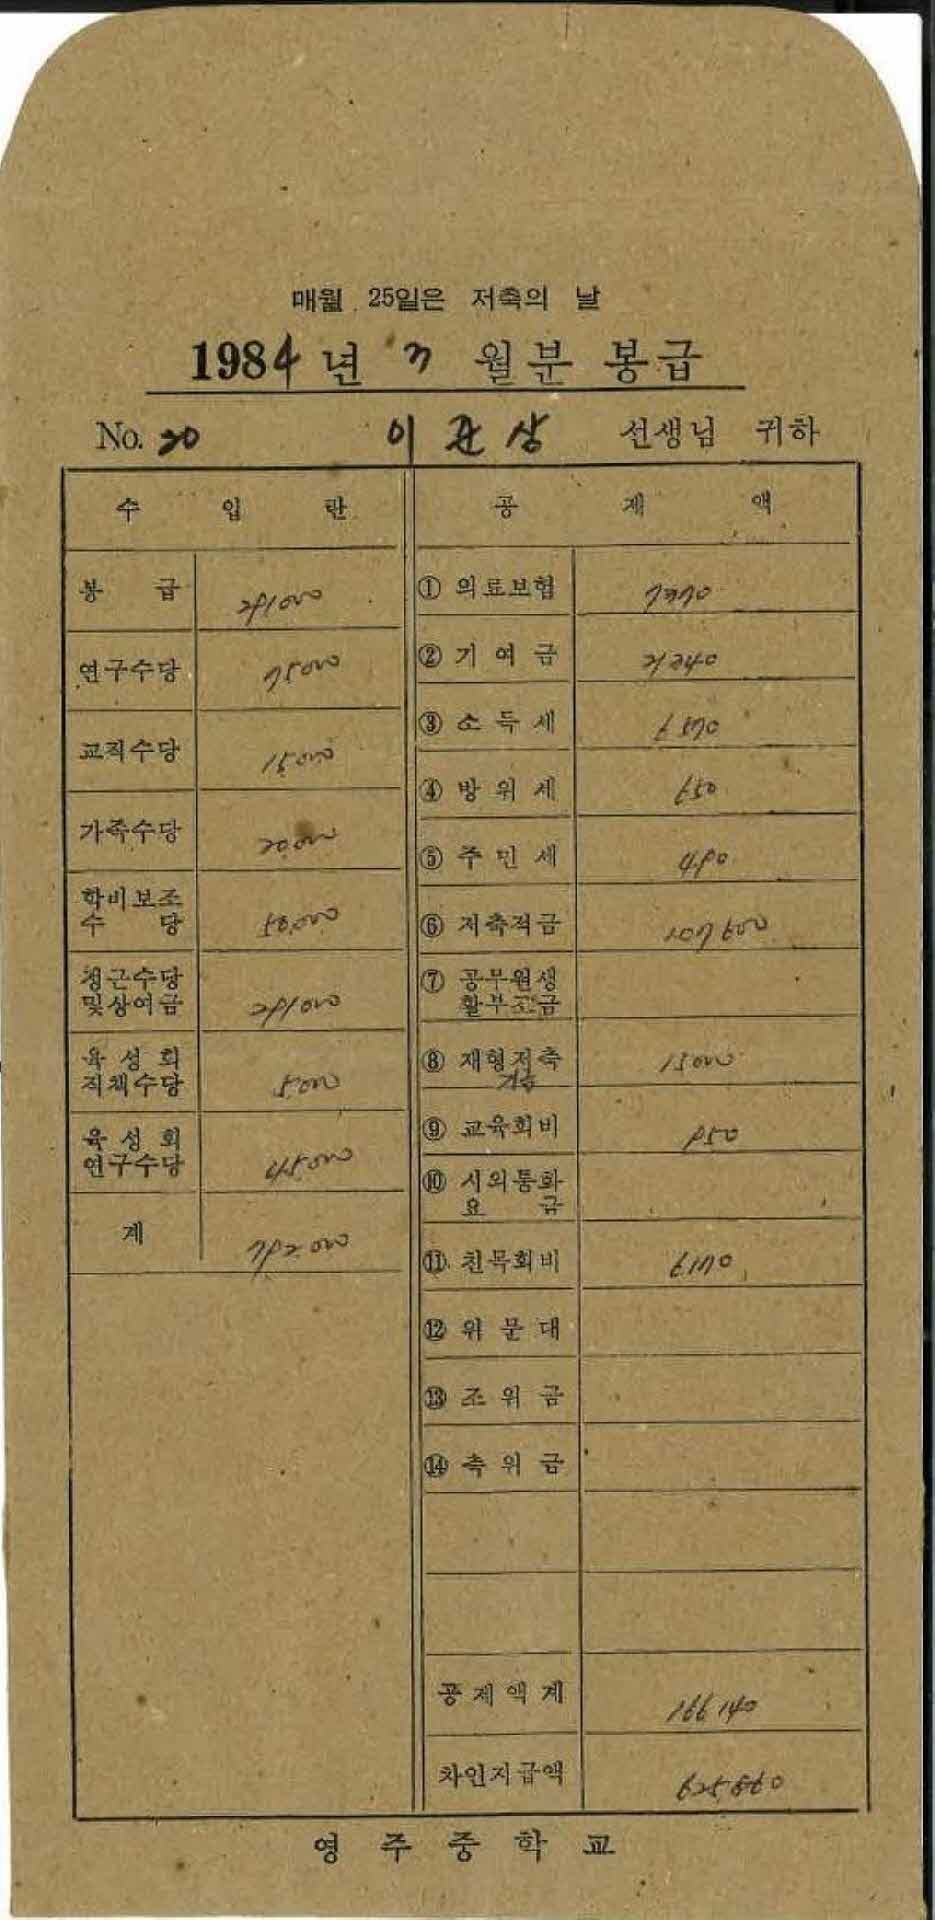 매월 25일은 저축의 날
1984년 3월분 봉급
No. 20 이관상 선생님 귀하
수입란 공제액
봉급 291000 ① 의료보험 7370
연구수당 75000 ② 기여금 21340
교직수당 15,000 ③ 소득세 6570
가족수당 20,000 ④ 방위세 650
⑤ 주민세 490
학비보조수당 50,000 ⑥ 저축적금 107600
정근수당 및상여금 291000 ⑦ 공무원생활부조금
육성회 직책수당 5000 ⑧ 재형저축 15000
육성회 연구수당 45000 ⑨ 교육회비 950
⑩ 시외통화요금
계 792,000 ⑪ 친목회비 6170
⑫ 위문대
⑬ 조위금
⑭ 축위금
공제액계 166140
차인지급액 625860
영주중학교